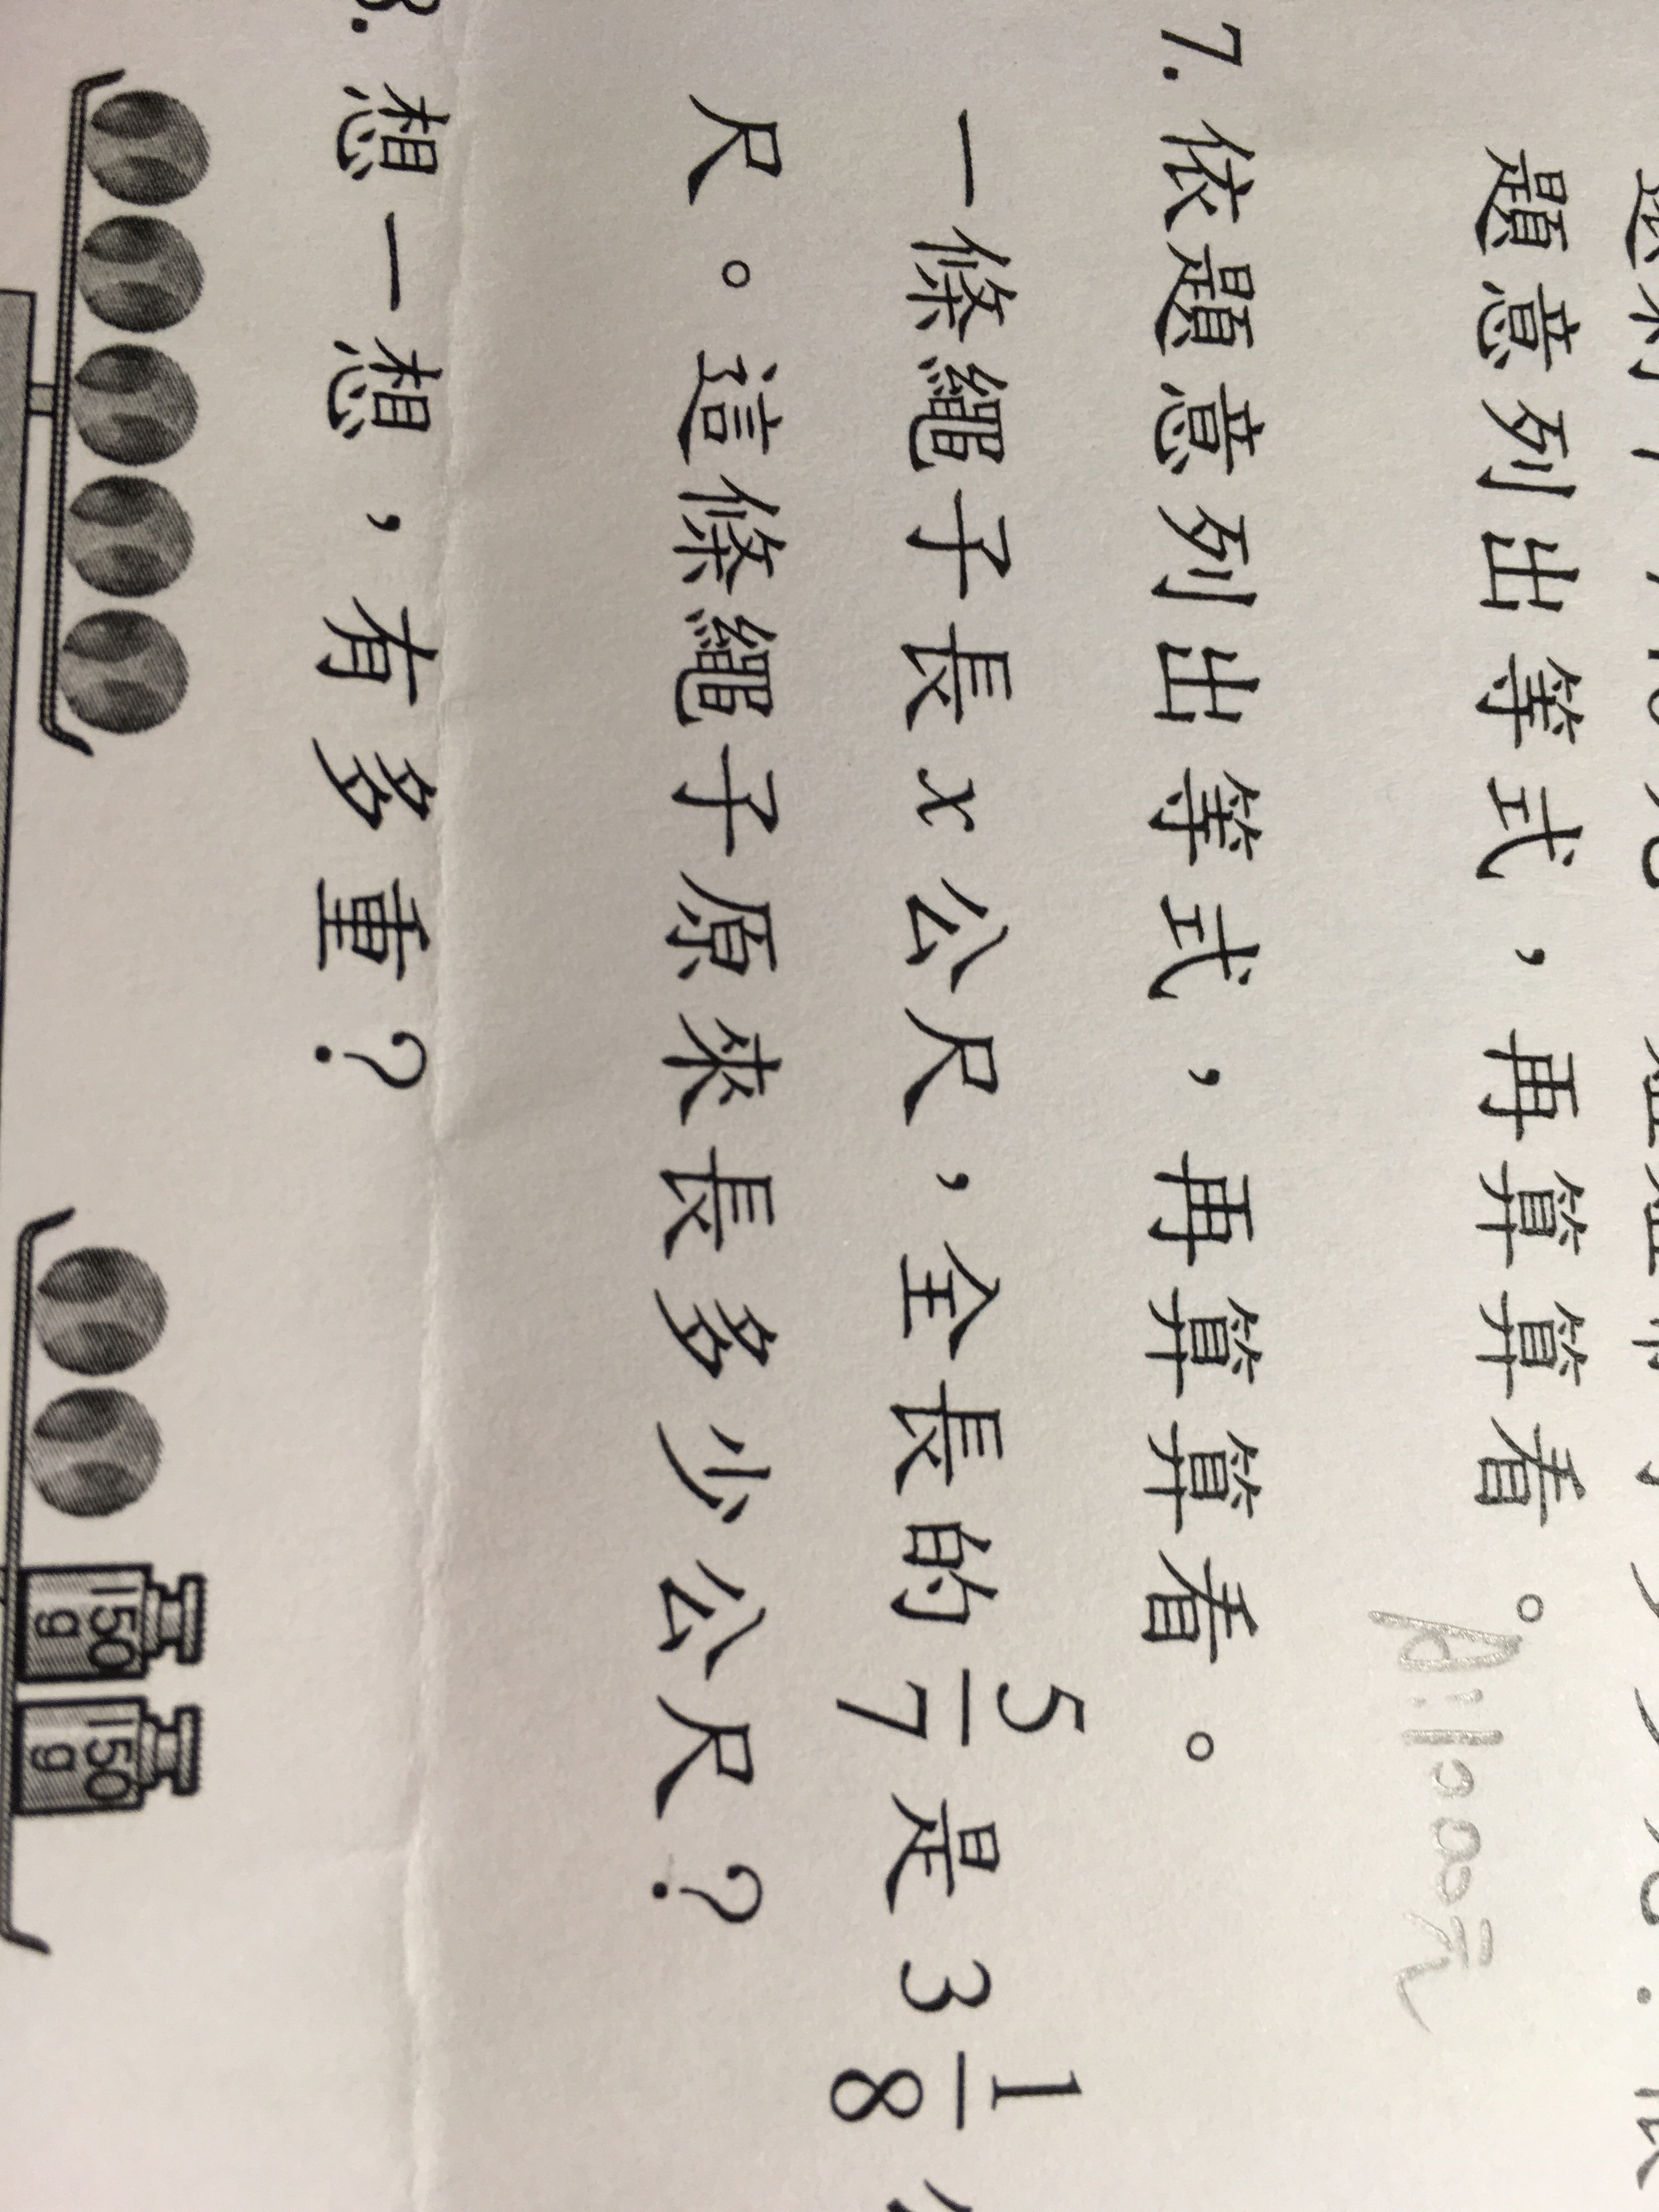 題意列出等式，再算算看。
A:1000元
7. 依題意列出等式，再算算看。
一條繩子長x公尺，全長的5/7是3 1/8公
尺。這條繩子原來長多少公尺？
8. 想一想，有多重？
150g 150g